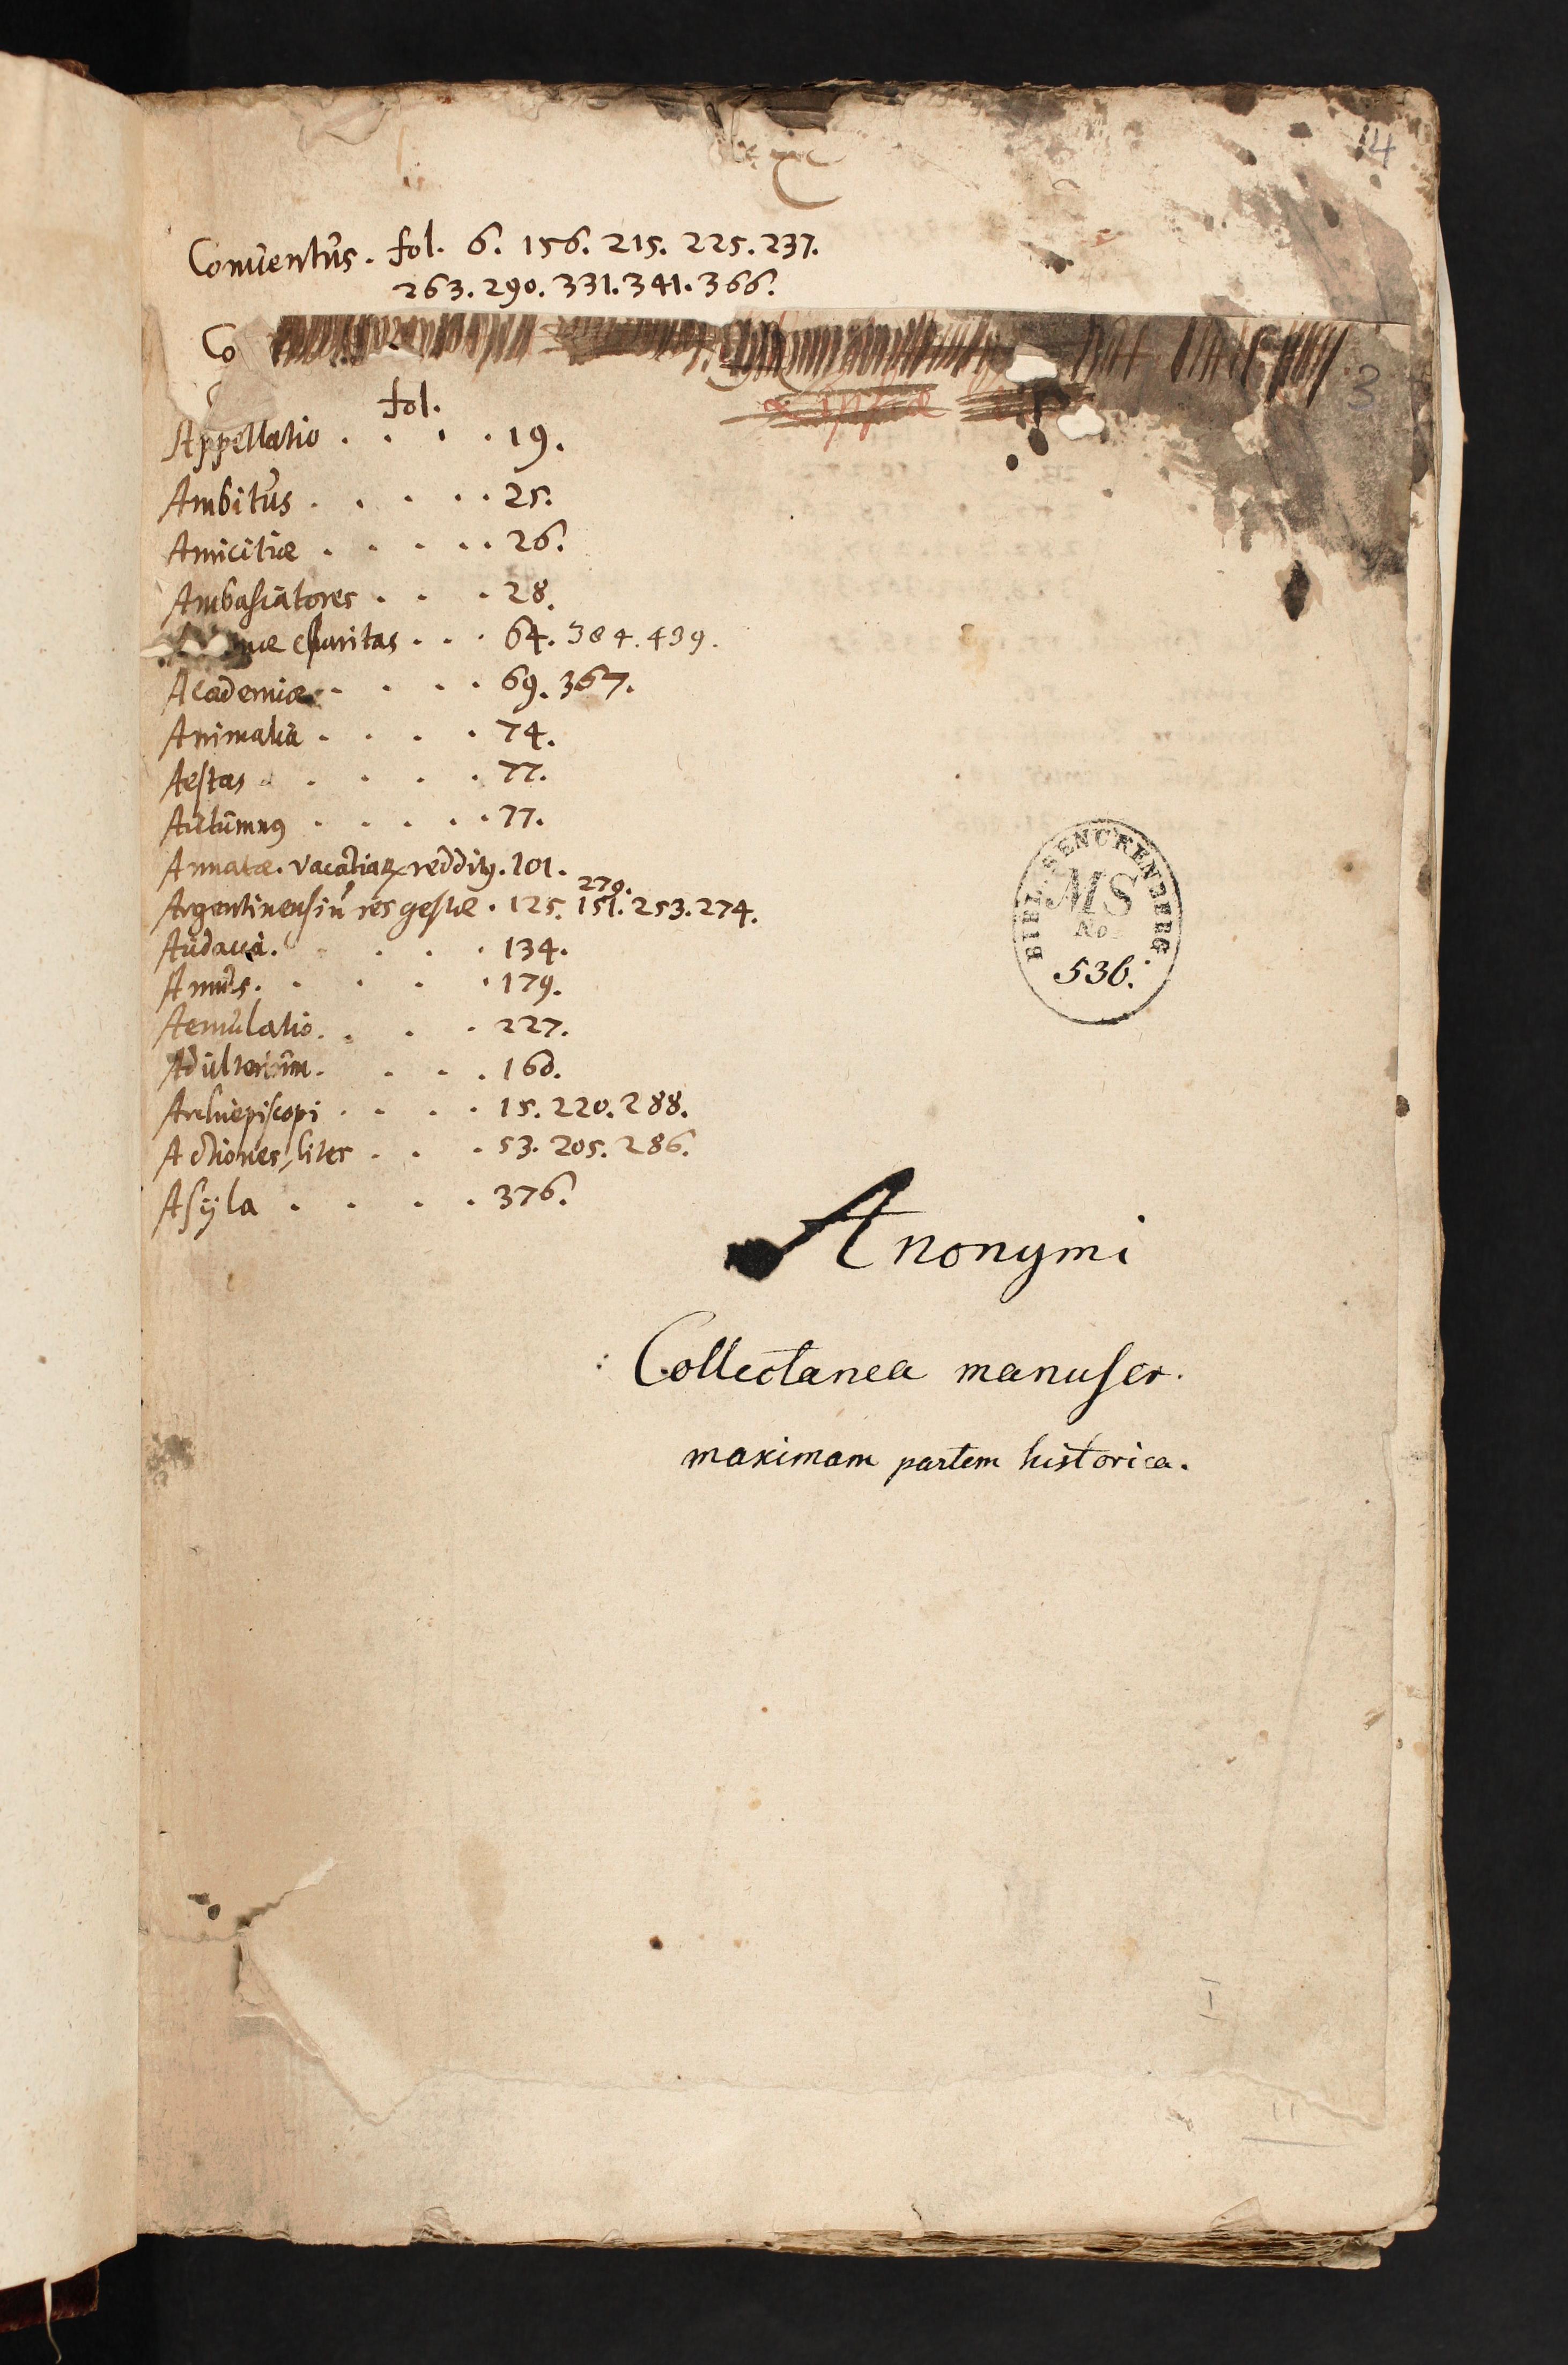 4
C
Conuentus. fol. 6. 156. 215. 225. 237.
263. 290. 331. 341. 366.
Co
3
fol.
Appellatio . . . . 19.
Ambitus . . . . . 25.
Amicitiæ . . . . . 26.
Ambasiatores . . . 28.
charitas . . . 64. 384. 439.
Academiæ . . . . 69. 367.
Animalia . . . . 74.
Aestas . . . . . 77.
Autumnꝰ . . . . . 77.
Annatæ. vacātiaꝝ redditꝰ. 101.
279.
Argentinensiū res gestæ . 125. 151. 253. 274.
Audacia. . . . . 134.
Annus. . . . . 179.
Aemulatio. . . . 227.
Adulterium. . . . 160.
Archiepiscopi . . . . 15. 220. 288.
Actiones, lites . . . 53. 205. 286.
Asÿla . . . . 376.
BIBL. SENCKENBERG
MS
No.
536.
Anonymi
Collectanea manuscr.
maximam partem historica.
I
II